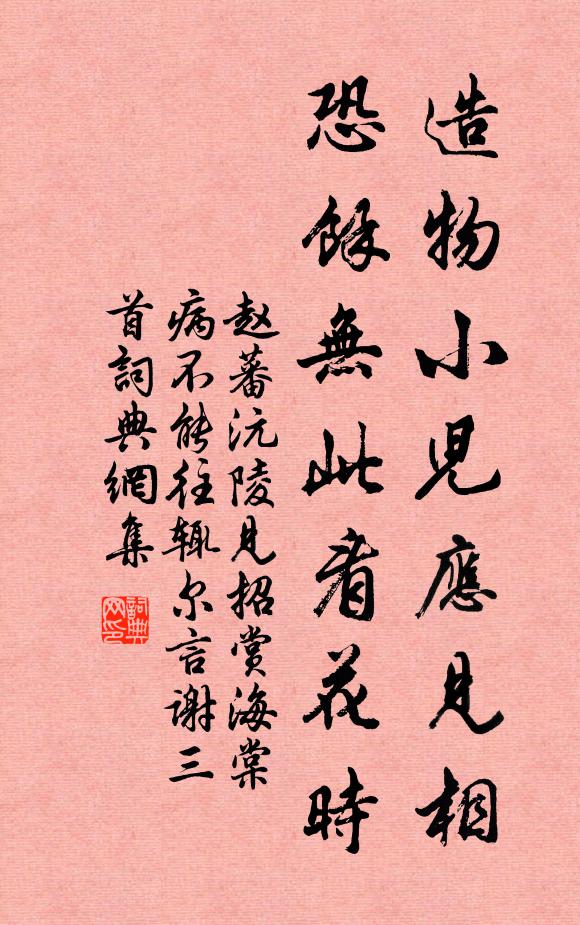 造物小児應見相
恐餘無此看花時
赵蕃沅陵見招賞海棠
病不能往辄尔言謝三
首詞典網集
詞典网印